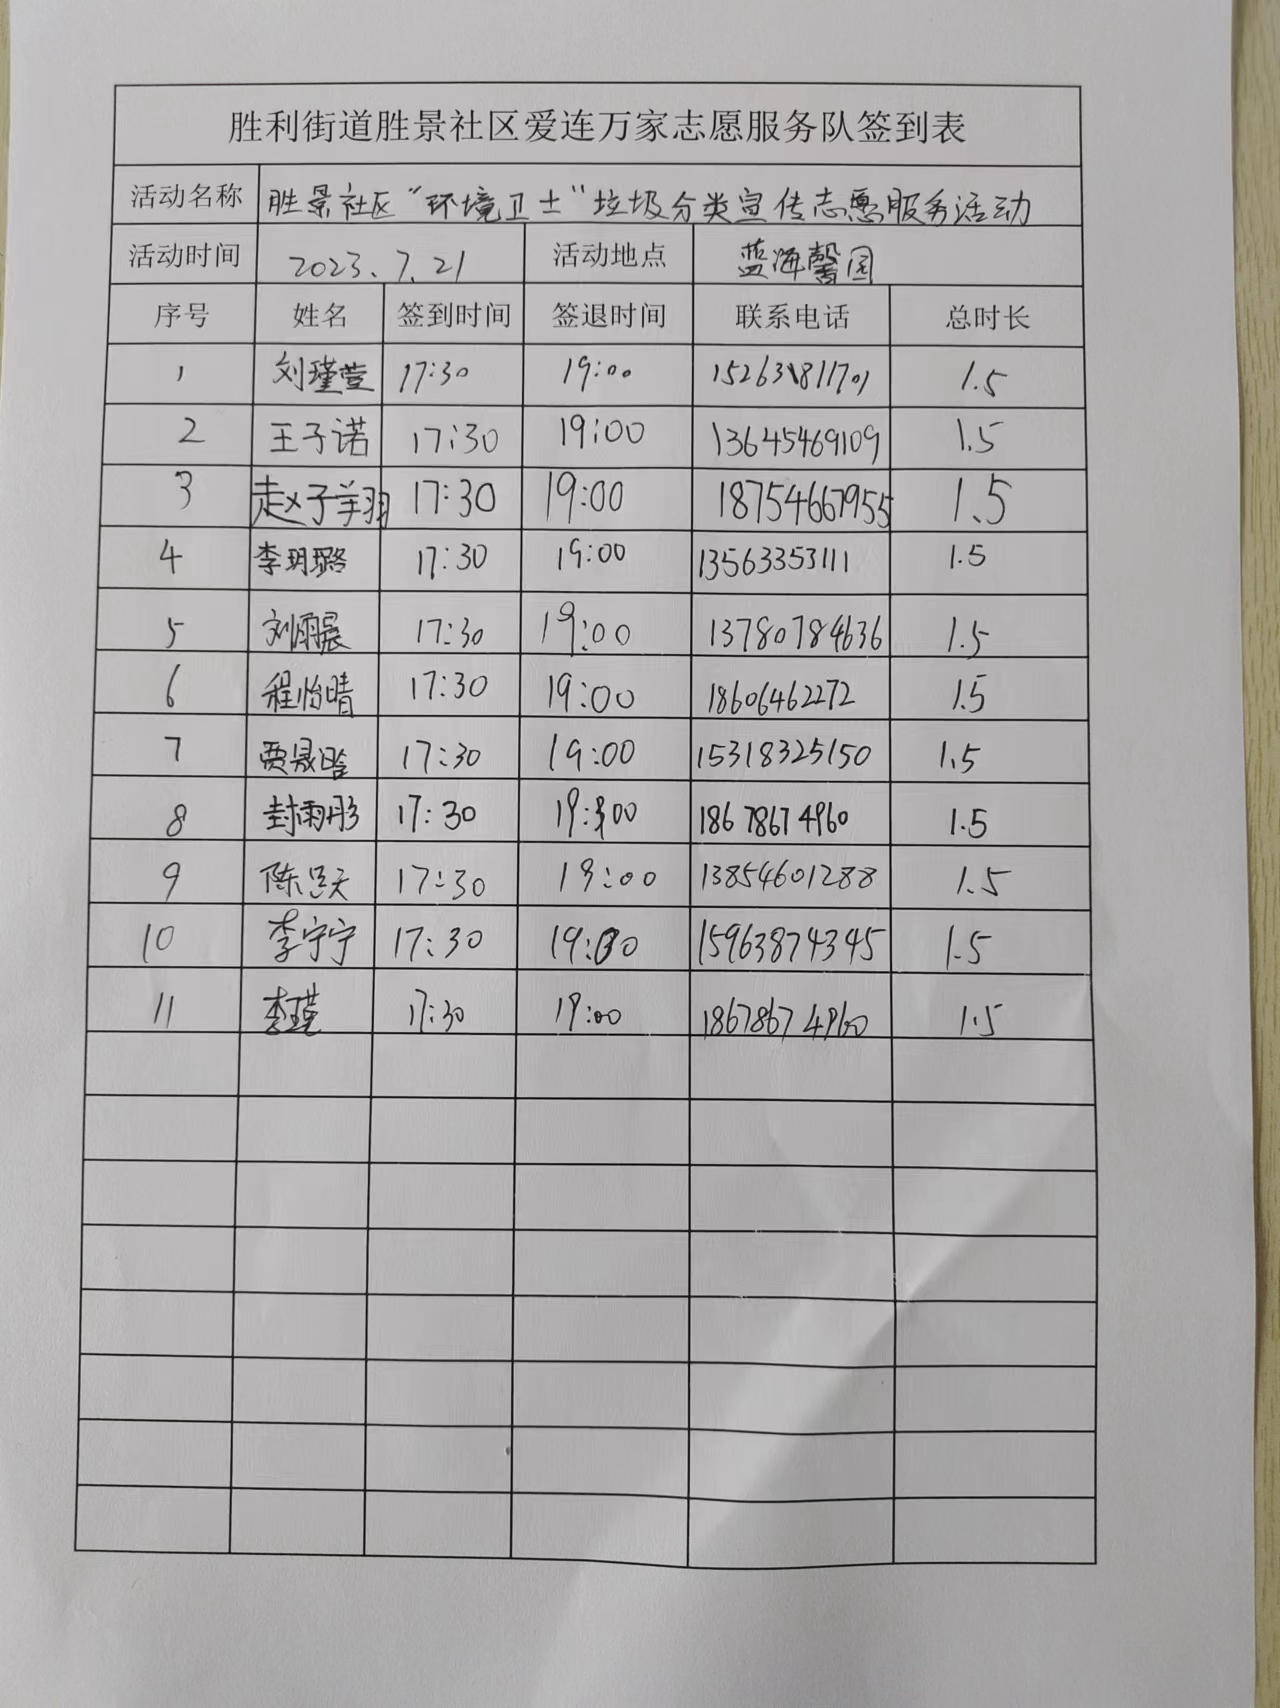 胜利街道胜景社区爱连万家志愿服务队签到表
活动名称 胜景社区“环境卫士”垃圾分类宣传志愿服务活动
活动时间 2023.7.21 活动地点 蓝海馨园
序号 姓名 签到时间 签退时间 联系电话 总时长
1 刘瑾萱 17:30 19:00 1.5
2 王子诺 17:30 19:00 13645469109 1.5
3 赵子羊羽 17:30 19:00 18754667955 1.5
4 李玥璐 17:30 19:00 13563353111 1.5
5 刘雨晨 17:30 19:00 13780784636 1.5
6 程怡晴 17:30 19:00 18606462272 1.5
7 贾晟晗 17:30 19:00 15318325150 1.5
8 封雨彤 17:30 19:00 18678674960 1.5
9 17:30 19:00 13854601288 1.5
10 李宁宁 17:30 19:00 15963874345 1.5
11 17:30 19:00 18678674960 1.5